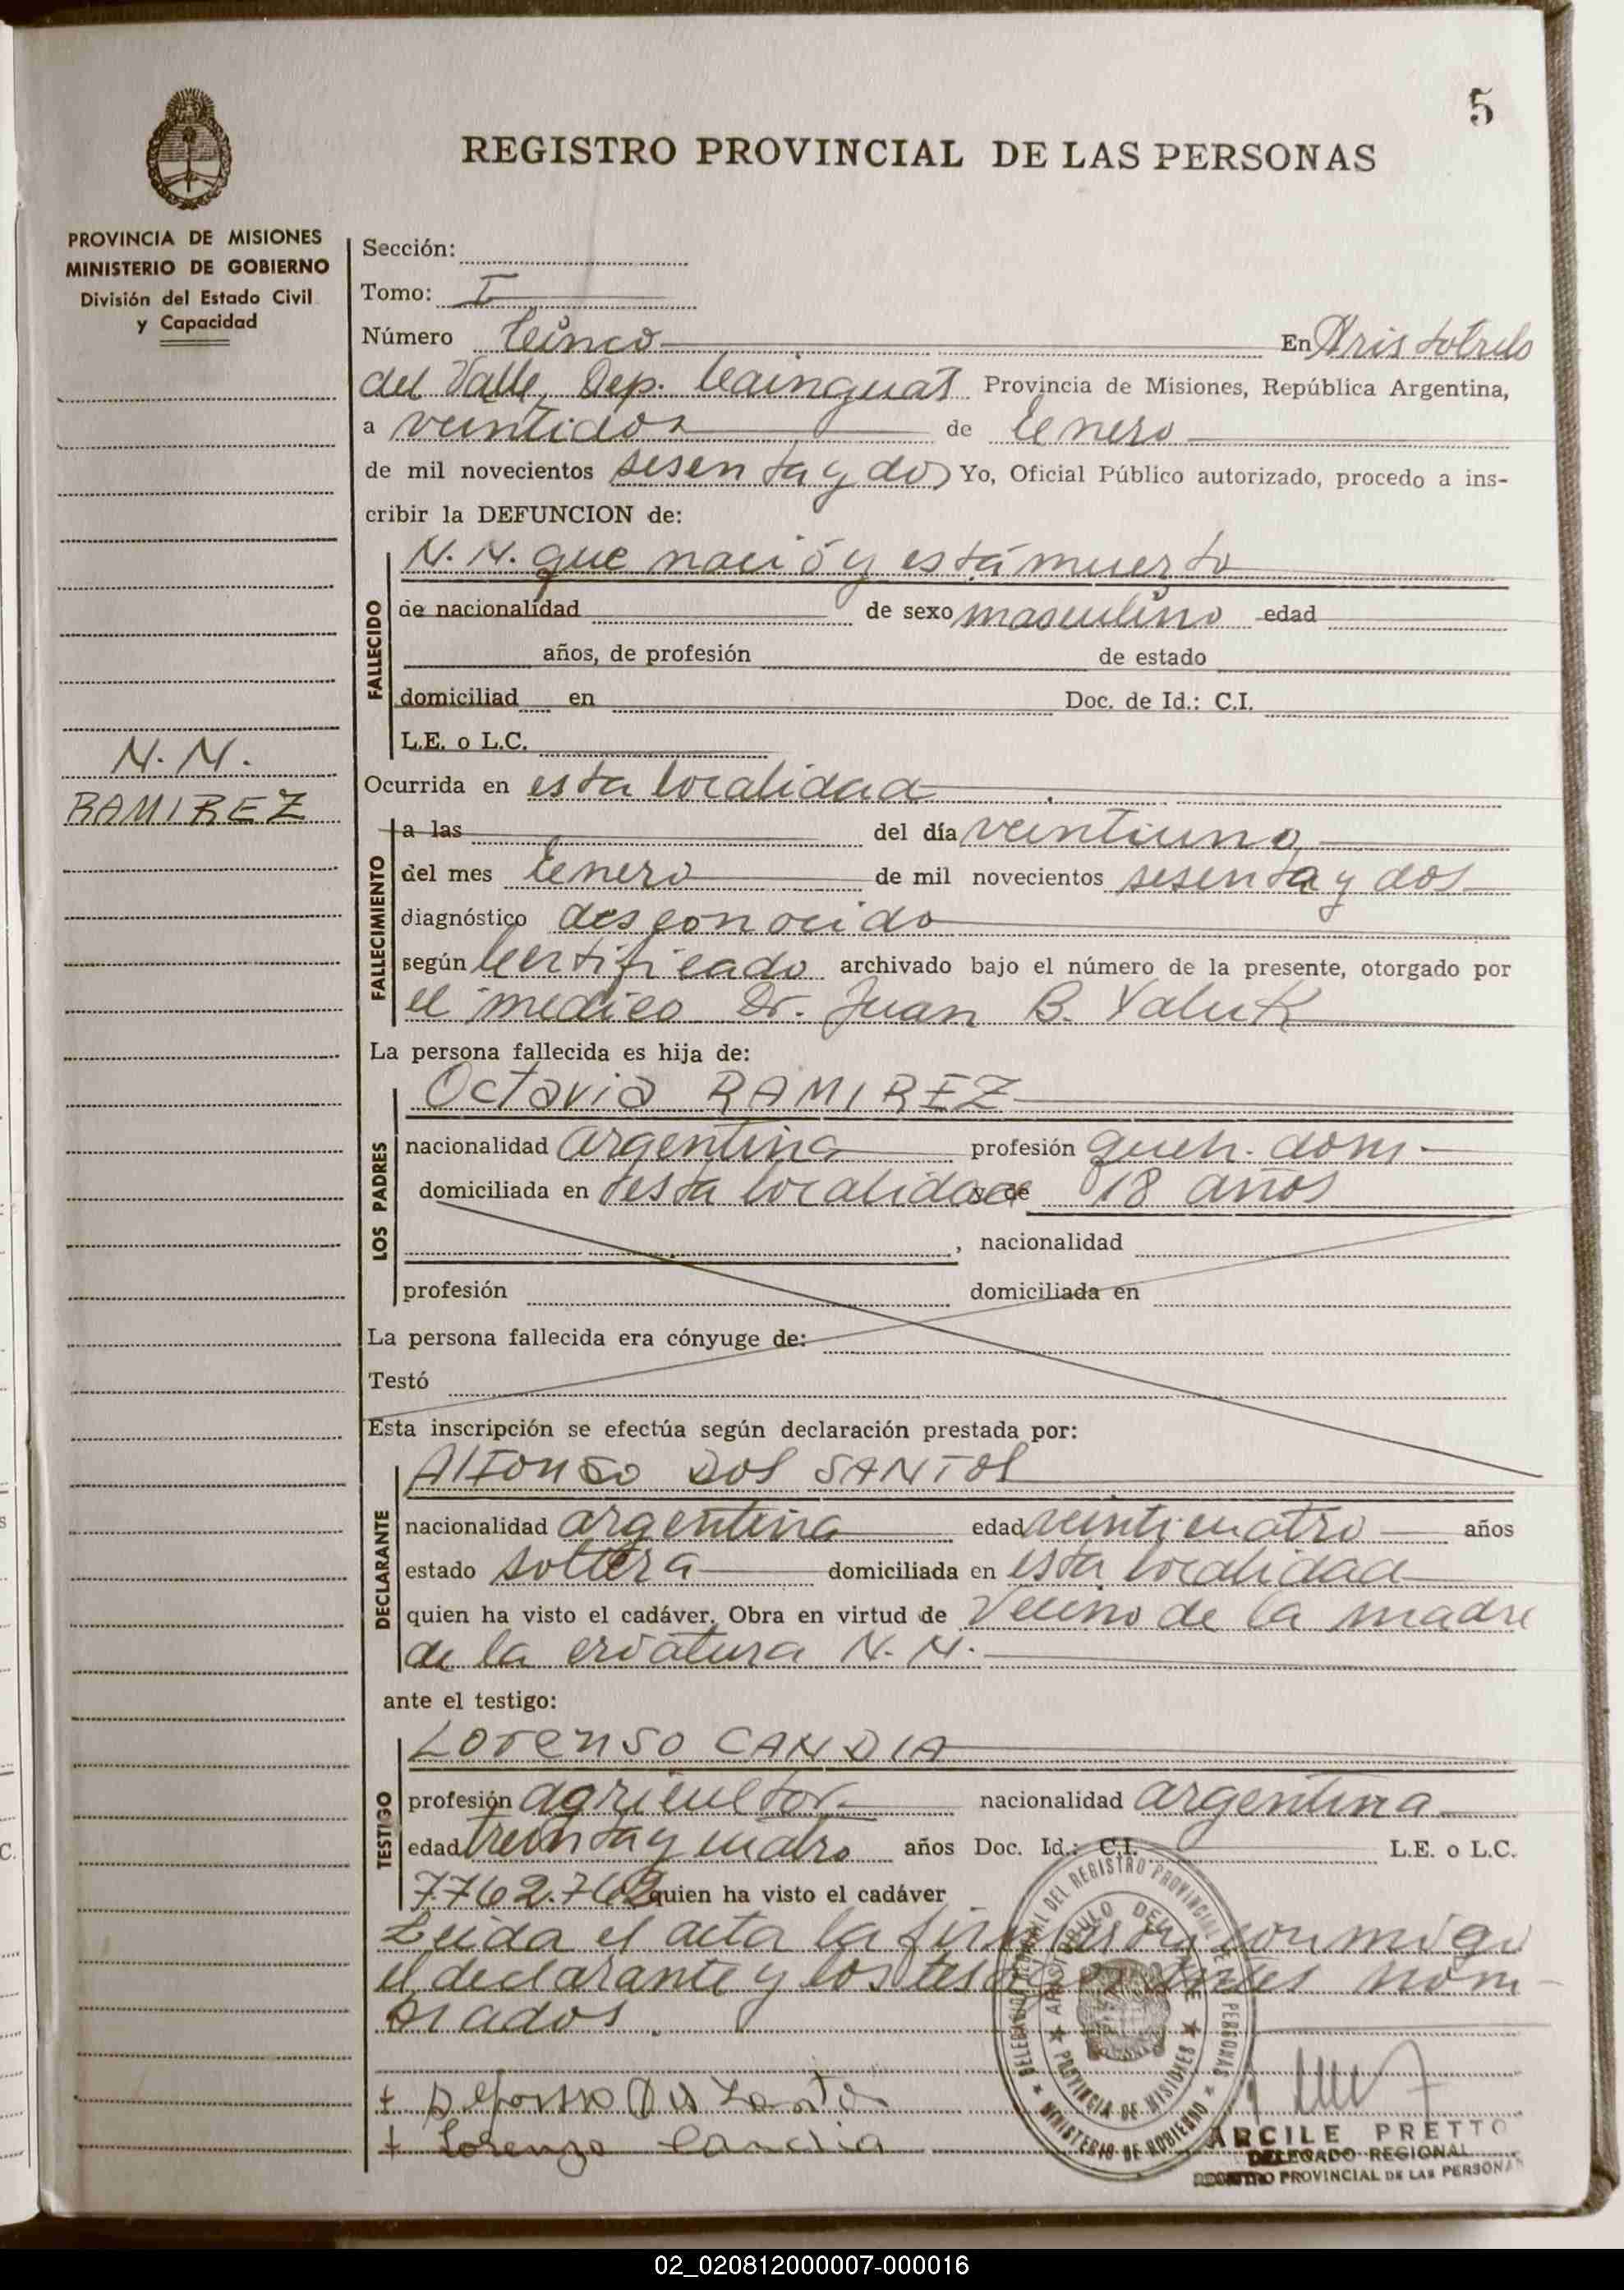 5
REGISTRO PROVINCIAL DE LAS PERSONAS
PROVINCIA DE MISIONES
MINISTERIO DE GOBIERNO
División del Estado Civil
y Capacidad
N. N.
RAMIREZ
Sección:
Tomo: I
Número Cinco En Aristobulo
del Valle, Dep. Cainguas Provincia de Misiones, República Argentina,
a veintidos de Enero
de mil novecientos sesenta y dos Yo, Oficial Público autorizado, procedo a ins-
cribir la DEFUNCION de:
FALLECIDO
N. N. que nació y está muerto
de nacionalidad de sexo masculino edad
años, de profesión de estado
domiciliad en Doc. de Id.: C.I.
L.E. o L.C.
Ocurrida en esta localidad
FALLECIMIENTO
a las del día veintiuno
del mes Enero de mil novecientos sesenta y dos
diagnóstico desconocido
según Certificado archivado bajo el número de la presente, otorgado por
el medico Dr. Juan B. Yaluk
La persona fallecida es hija de:
LOS PADRES
Octavia RAMIREZ
nacionalidad argentina profesión queh. dom.
domiciliada en esta localidad de 18 años
, nacionalidad
profesión domiciliada en
La persona fallecida era cónyuge de:
Testó
Esta inscripción se efectúa según declaración prestada por:
DECLARANTE
Alfonso DOS SANTOS
nacionalidad argentina edad veinticuatro años
estado soltera domiciliada en esta localidad
quien ha visto el cadáver. Obra en virtud de Vecino de la madre
de la criatura N. N.
ante el testigo:
TESTIGO
Lorenso CANDIA
profesión agricultor nacionalidad argentina
edad treinta y cuatro años Doc. Id.: C.I. L.E. o L.C.
7.762.762 quien ha visto el cadáver
Leida el acta la firman conmigo
el declarante y los testigos antes nom-
brados.
+ Alfonso Dos Santos
+ Lorenzo Candia
DELEGACION REGIONAL DEL REGISTRO PROVINCIAL DE LAS PERSONAS
★ MINISTERIO DE GOBIERNO ★
ARISTOBULO DEL VALLE
★ PROVINCIA DE MISIONES ★
ARCILE PRETTO
DELEGADO REGIONAL
REGISTRO PROVINCIAL DE LAS PERSONAS
02_020812000007-000016